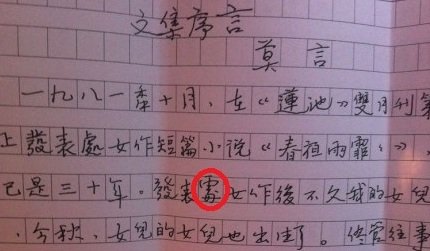 文集序言
莫言
一九八一秊十月,在《蓮池》雙月刊第
上發表處女作短篇小说《春夜雨霏々》,
已是三十年。發表女作後不久我的女兒
,今秋,女兒的女兒也出生了。往事